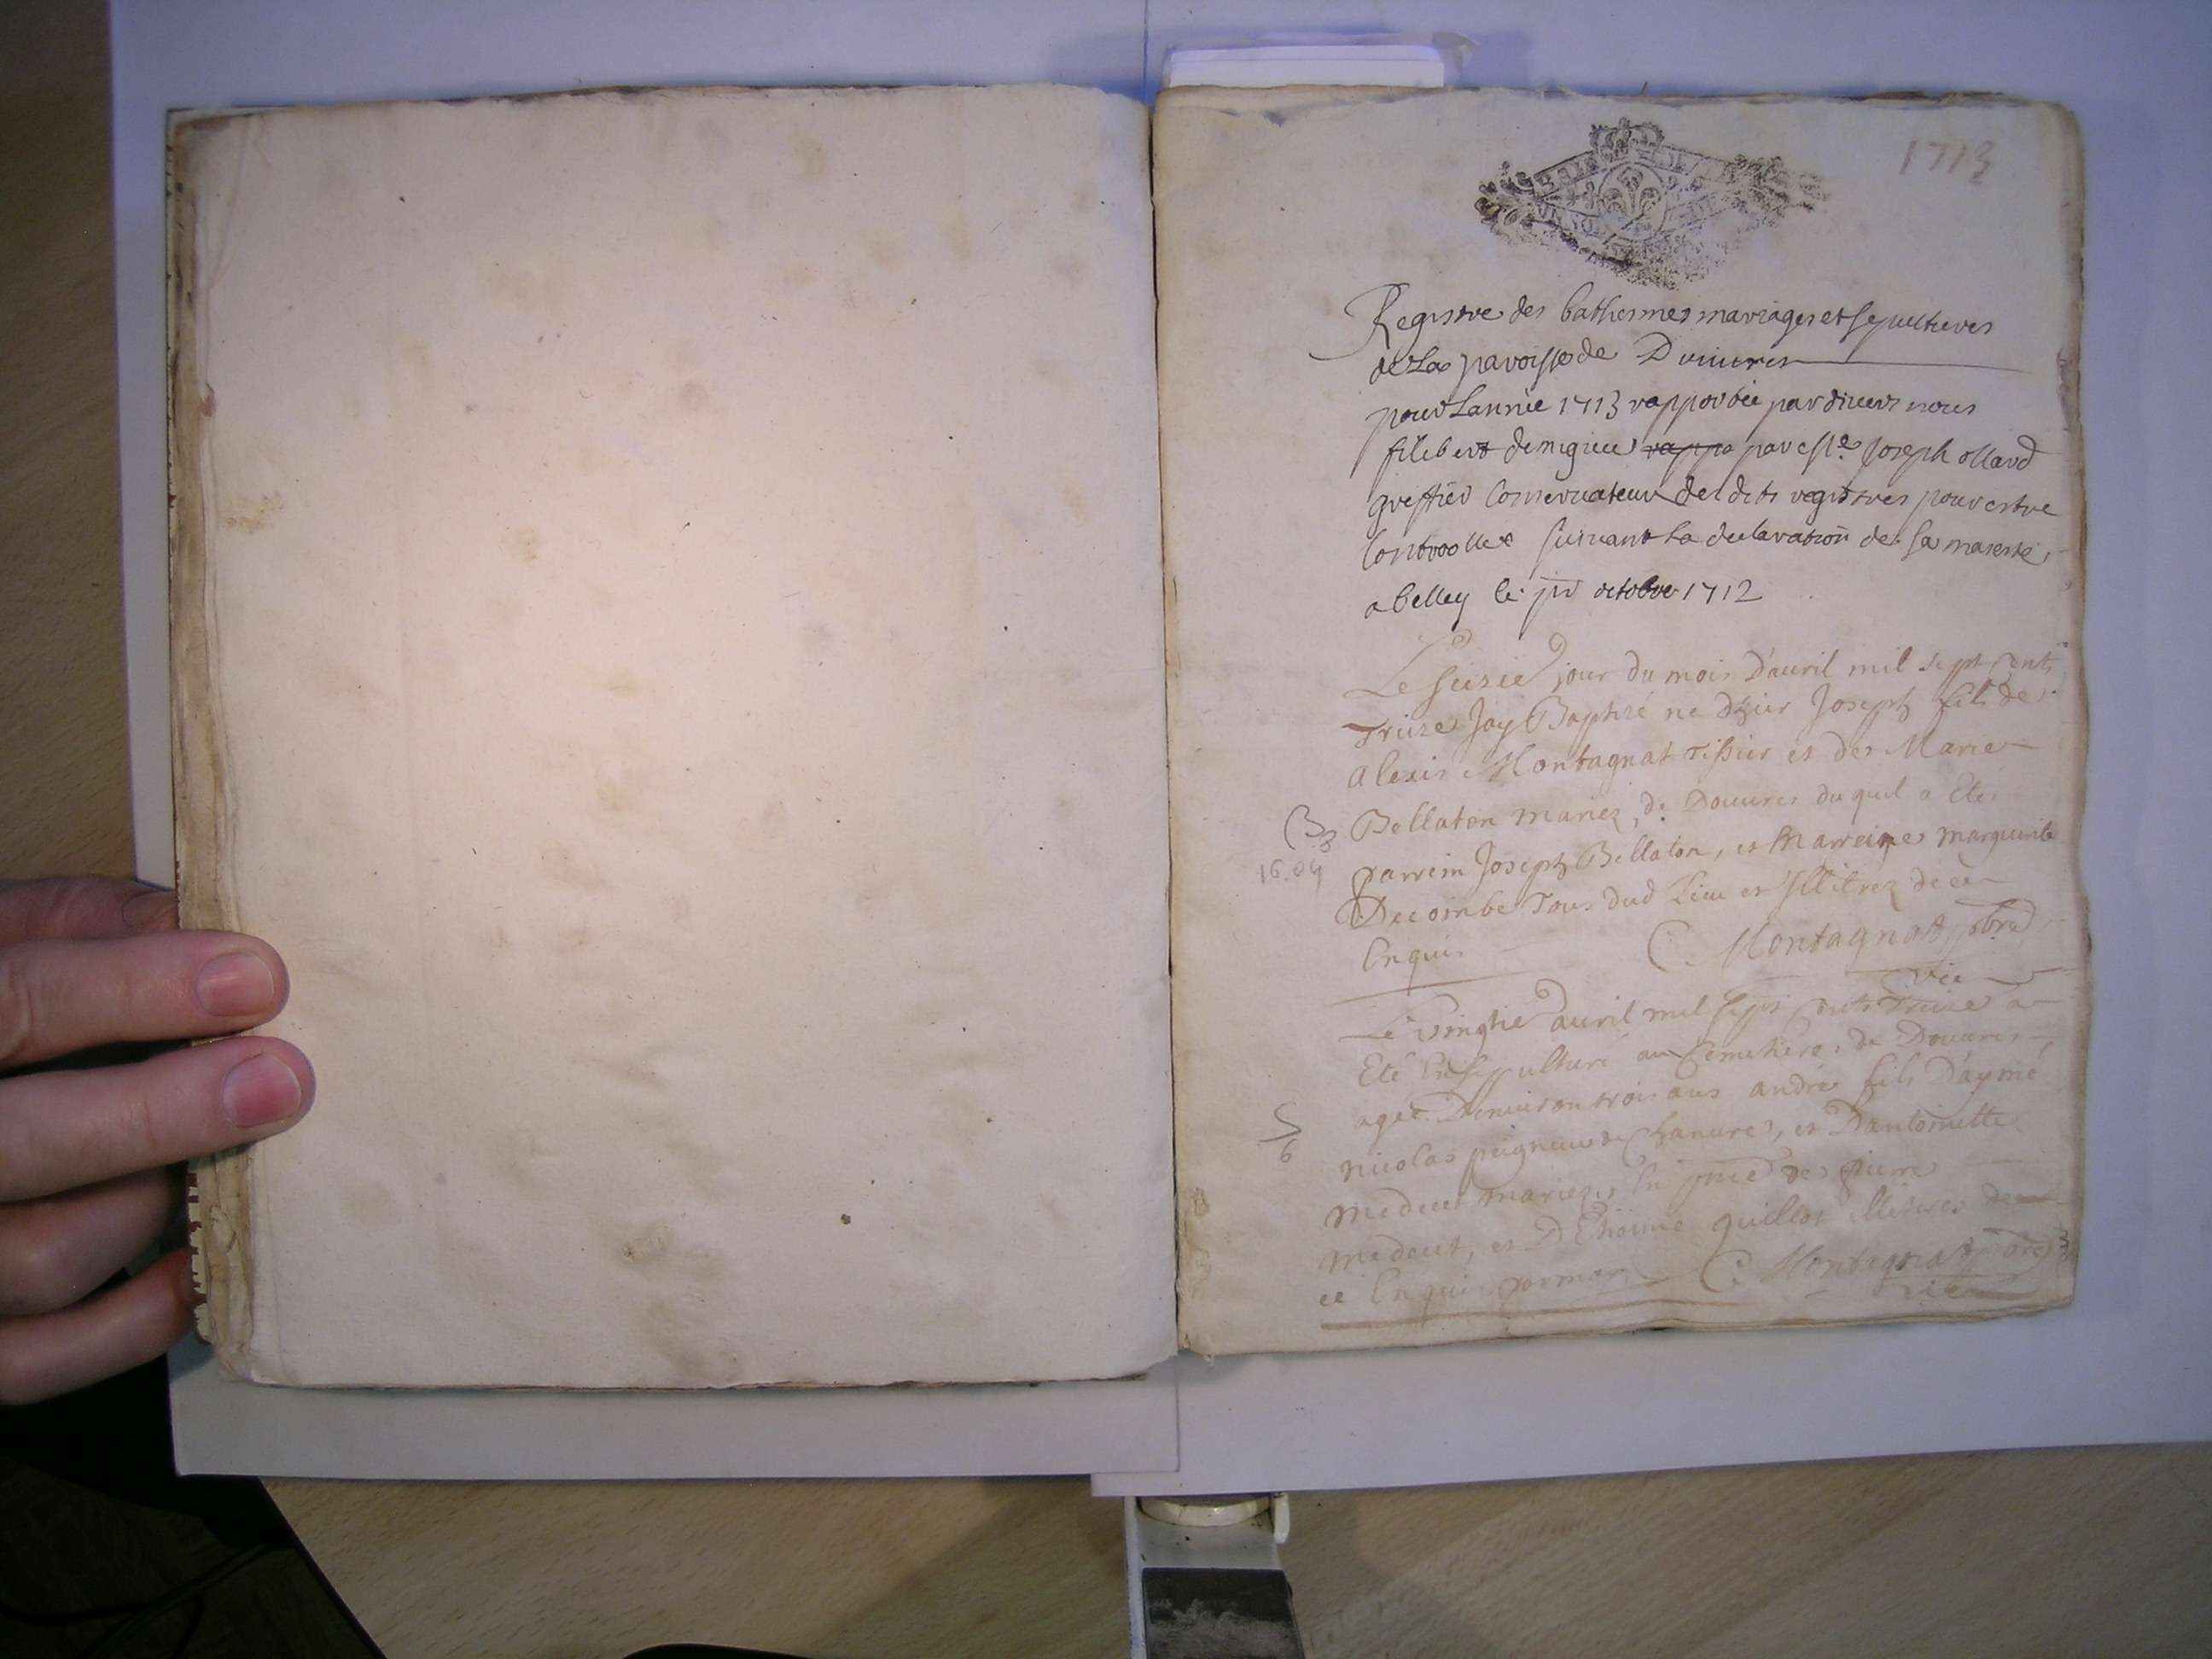 1713
Registre des bathesmes mariages et sepultures
de La paroisse de Douures
pour Lannée 1713 par deuers nous
filibert demigieu par Joseph ollard
greffier Conseruateur des dits registres pour estre
Controllée suiuant La declaration de sa maiesté
a belley le pr octobre 1712
Le seizie jour du mois D'auril mil sept cents
Treize Jay Baptizé né Joseph fils de
Alexis Montagnat Tissier et de Marie
Bellaton mariez de Douures duquel a Eté
parrein Joseph Bellaton, et Marreine marguerite
Decombe Tous dud Lieu et Illitrez de ce
Enquis C. Montagnat pbre
vic
B
16.04
Le vingtie auril mil sept cents Treize a
Eté Ensepulturé au Cemetiere de Douures
agée Denuiron trois ans andré fils D'aymé
nicolas peigneur de chanures, et D'antoinette
medecet mariez, En de pierre
medecet, et D'Etienne guillot illitrez de
ce Enquis C. Montagnat pbre
vic
S
6